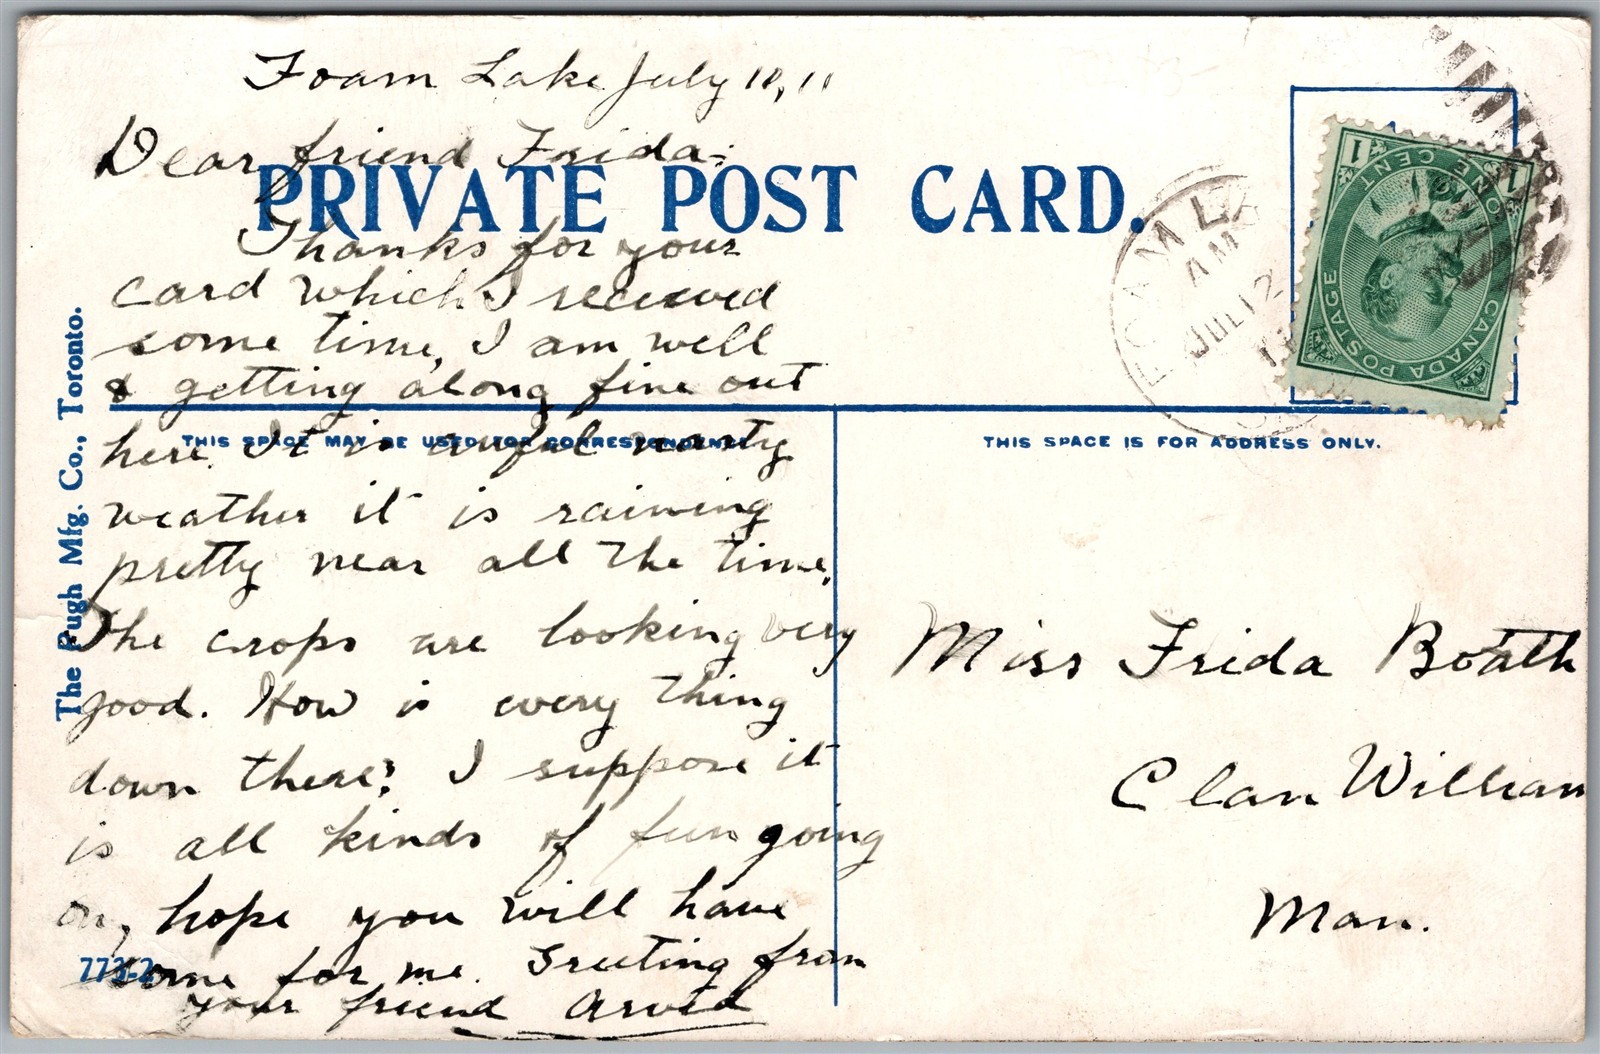 Foam Lake July 11, 11
Dear friend Frida:
PRIVATE POST CARD.
Thanks for your
card which I received
some time, I am well
& getting along fine out
here. It is awful nasty
weather it is raining
pretty near all the time.
The crops are looking very
good. How is every thing
down there? I suppose it
is all kinds of fun going
on, hope you will have
some for me. Greeting from
your friend Arved
THIS SPACE MAY BE USED FOR CORRESPONDENCE
THIS SPACE IS FOR ADDRESS ONLY.
Miss Frida Boath
Clan William
Man.
The Pugh Mfg. Co., Toronto.
773-2
FOAM LA
AM
JUL 12
11
CANADA POSTAGE
ONE CENT
1
1